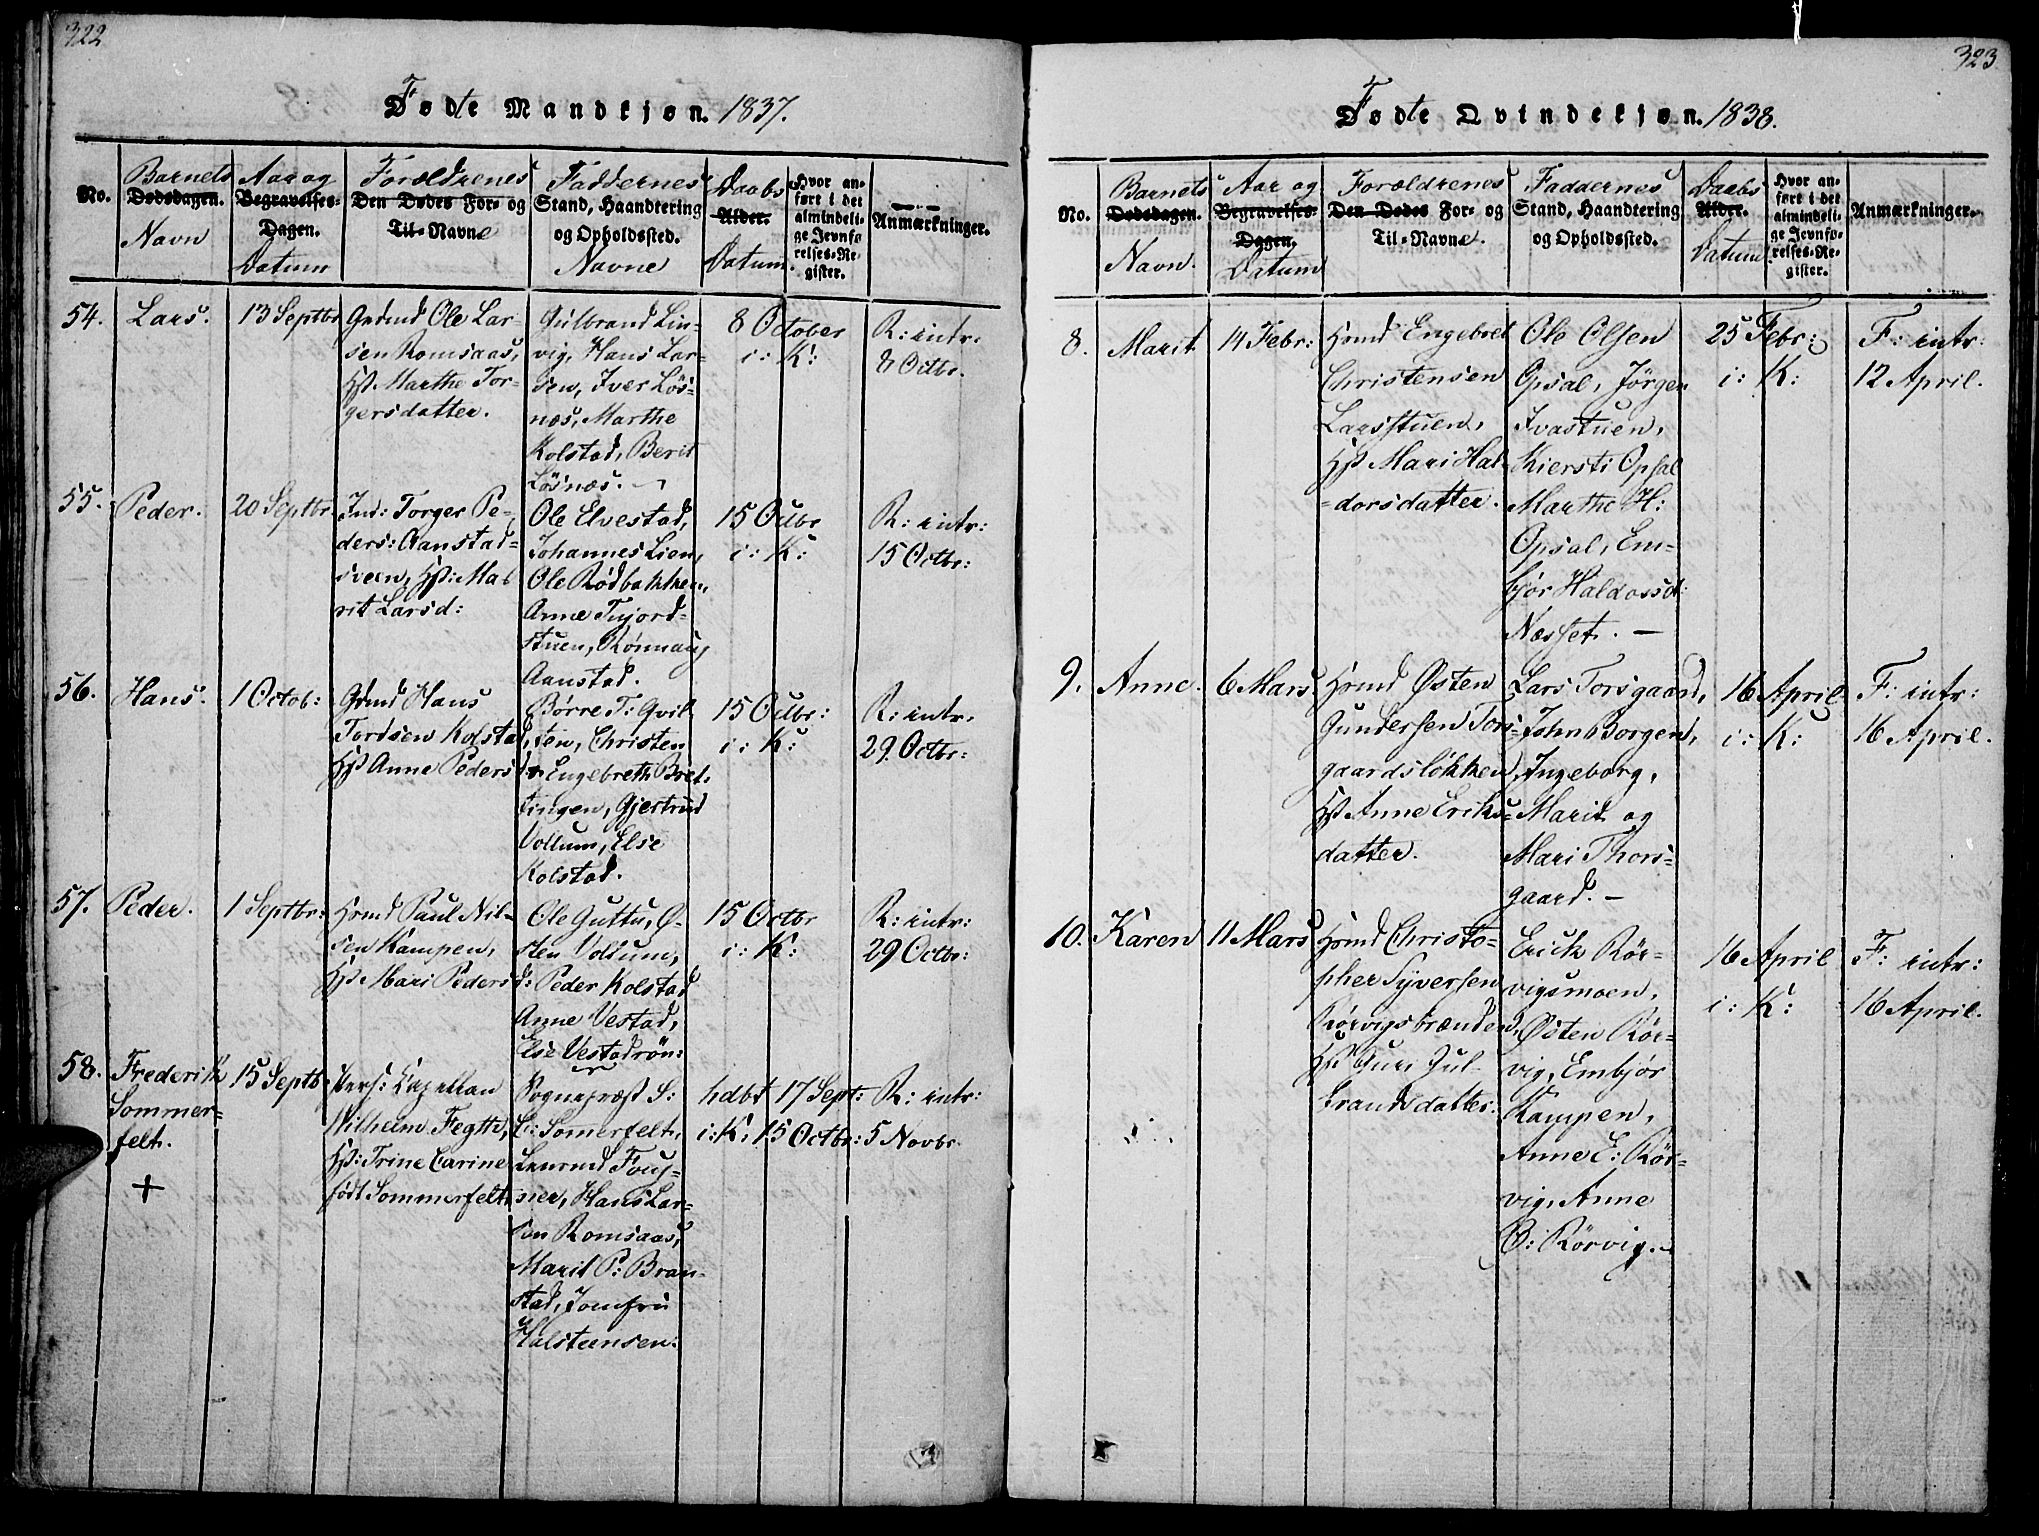 322
Fødte Mandkjøn. 1837.
No.
Barnets
Dødsdagen.
Navn
Aar og
Begravelses-
Dagen.
Datum
Forældrenes
Den Dødes For- og
Til-Navne
Faddernes
Stand, Haandtering
og Opholdssted.
Navne
Daabs
Alder.
Datum
Hvor an-
ført i det
almindeli-
ge Jevnfø-
relses-Re-
gister.
Anmærkninger.
54.
Lars.
13 Septbr
Grdmd Ole Lar-
sen Romsaas,
Hst. Marthe Tor-
gersdatter.
Gulbrand Lin-
vig, Hans Lar-
sen, Iver Løs-
næs, Marthe
Kolstad, Berit
Løsnæs.
8 October
i: K:
R: intr:
8 Octbr.
55.
Peder.
20 Septbr
Ind: Torger Pe-
ders: Aanstad-
sveen, Hst: Ma-
rit Larsd:
Ole Elvestad,
Johannes Lien,
Ole Rødbakken,
Anne Tujord-
stuen, Rønnaug
Aanstad.
15 Octbr
i: K:
R: intr:
15 Octbr:
56.
Hans.
1 Octob:
Grdmd Hans
Tordsen Kolstad,
Hst Anne Pedersd:
Børre T: Qvil-
sten, Christen
Engebreth Bret-
tingen, Gjertrud
Vollum, Else
Kolstad.
15 Octbr:
i: K:
R: intr.
29. Octbr:
57.
Peder.
1 Septbr:
Hsmd Paul Nil-
sen Kampen,
Hst Mari Pedersd:
Ole Guttu, Ø-
sten Vollum,
Peder Kolstad
Anne Vestad,
Else Vestadrøn:
15 Octbr
i: K:
R: intr:
29 Octbr:
58.
Frederik
Sommer-
felt.
+
15 Septb:
Pers: Capellan
Wilhelm Fegtte,
Hst: Trine Carine
født Sommerfelt.
Sognepræst S:
C: Somerfelt,
Lensmd Foug-
ner, Hans Lar-
sen Romsaas,
Marit P: Bran-
stad, Jomfru
Halsteensen:
hdbt 17 Sept:
i: K, 15 Octbr:
R: intr:
5 Novbr.
323
Fødte Qvindekjøn. 1838.
No.
Barnets
Dødsdagen.
Navn.
Aar og
Begravelses-
Dagen.
Datum
Forældrenes
Den Dødes For- og
Til-Navne.
Faddernes
Stand, Haandtering
og Opholdssted.
Daabs
Alder.
Datum
Hvor an-
ført i det
almindeli-
ge Jevnfø-
relses-Re-
gister.
Anmærkninger.
8.
Marit
14 Febr:
Hsmd Engebret
Christensen
Larsstuen,
Hst Mari Hal-
dorsdatter.
Ole Olsen
Opsal, Jørgen
Ivastuen,
Kiersti Opsal
Marthe H:
Opsal, Em-
bjør Haldorsd:
Næsset.
25 Febr:
i: K:
F: intr:
12 April.
9.
Anne.
6 Mars
Hsmd Østen
Gundersen Tors-
gaardsløkken,
Hst Anne Eriks-
datter.
Lars Torsgaard,
John Borgen,
Ingeborg,
Marit og
Mari Thors-
gaard.
16 April
i: K:
F: intr:
16 April.
10.
Karen
11 Mars
Hsmd Christo-
pher Syversen
Rørvigsbrænden,
Hst Guri Gul-
brandsdatter.
Erick Rør-
vigsmoen,
Østen Rør-
vig, Embjør
Kampen,
Anne E: Rør-
vig, Anne
O: Rørvig.
16 April
i: K:
F: intr:
16 April.